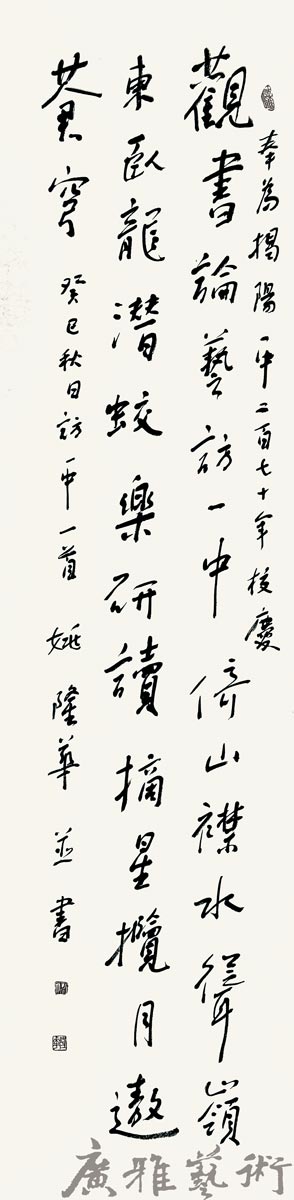 奉為揭陽一中二百七十年校慶
觀書論藝訪一中倚山襟水聳嶺
東臥龍潛蛟樂研讀摘星攬月遨
蒼穹
癸巳秋日訪一中一首
姚隆華並書
廣雅藝術